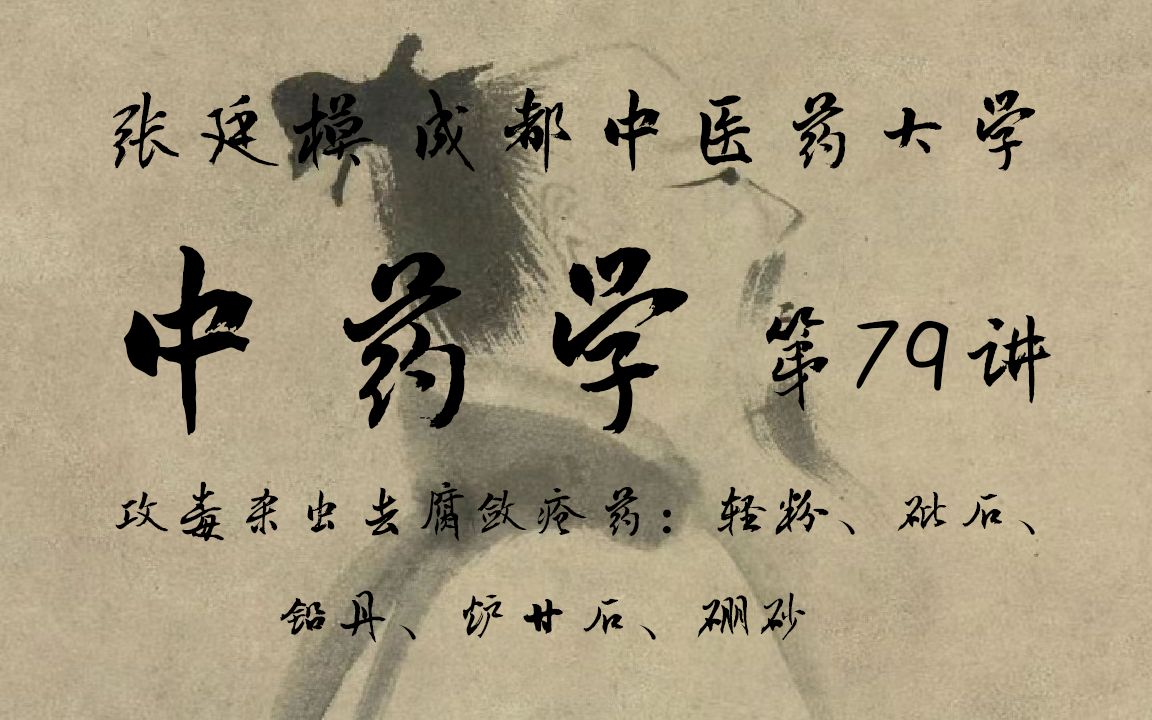 张廷模成都中医药大学
中药学 第79讲
攻毒杀虫去腐敛疮药：轻粉、砒石、
铅丹、炉甘石、硼砂